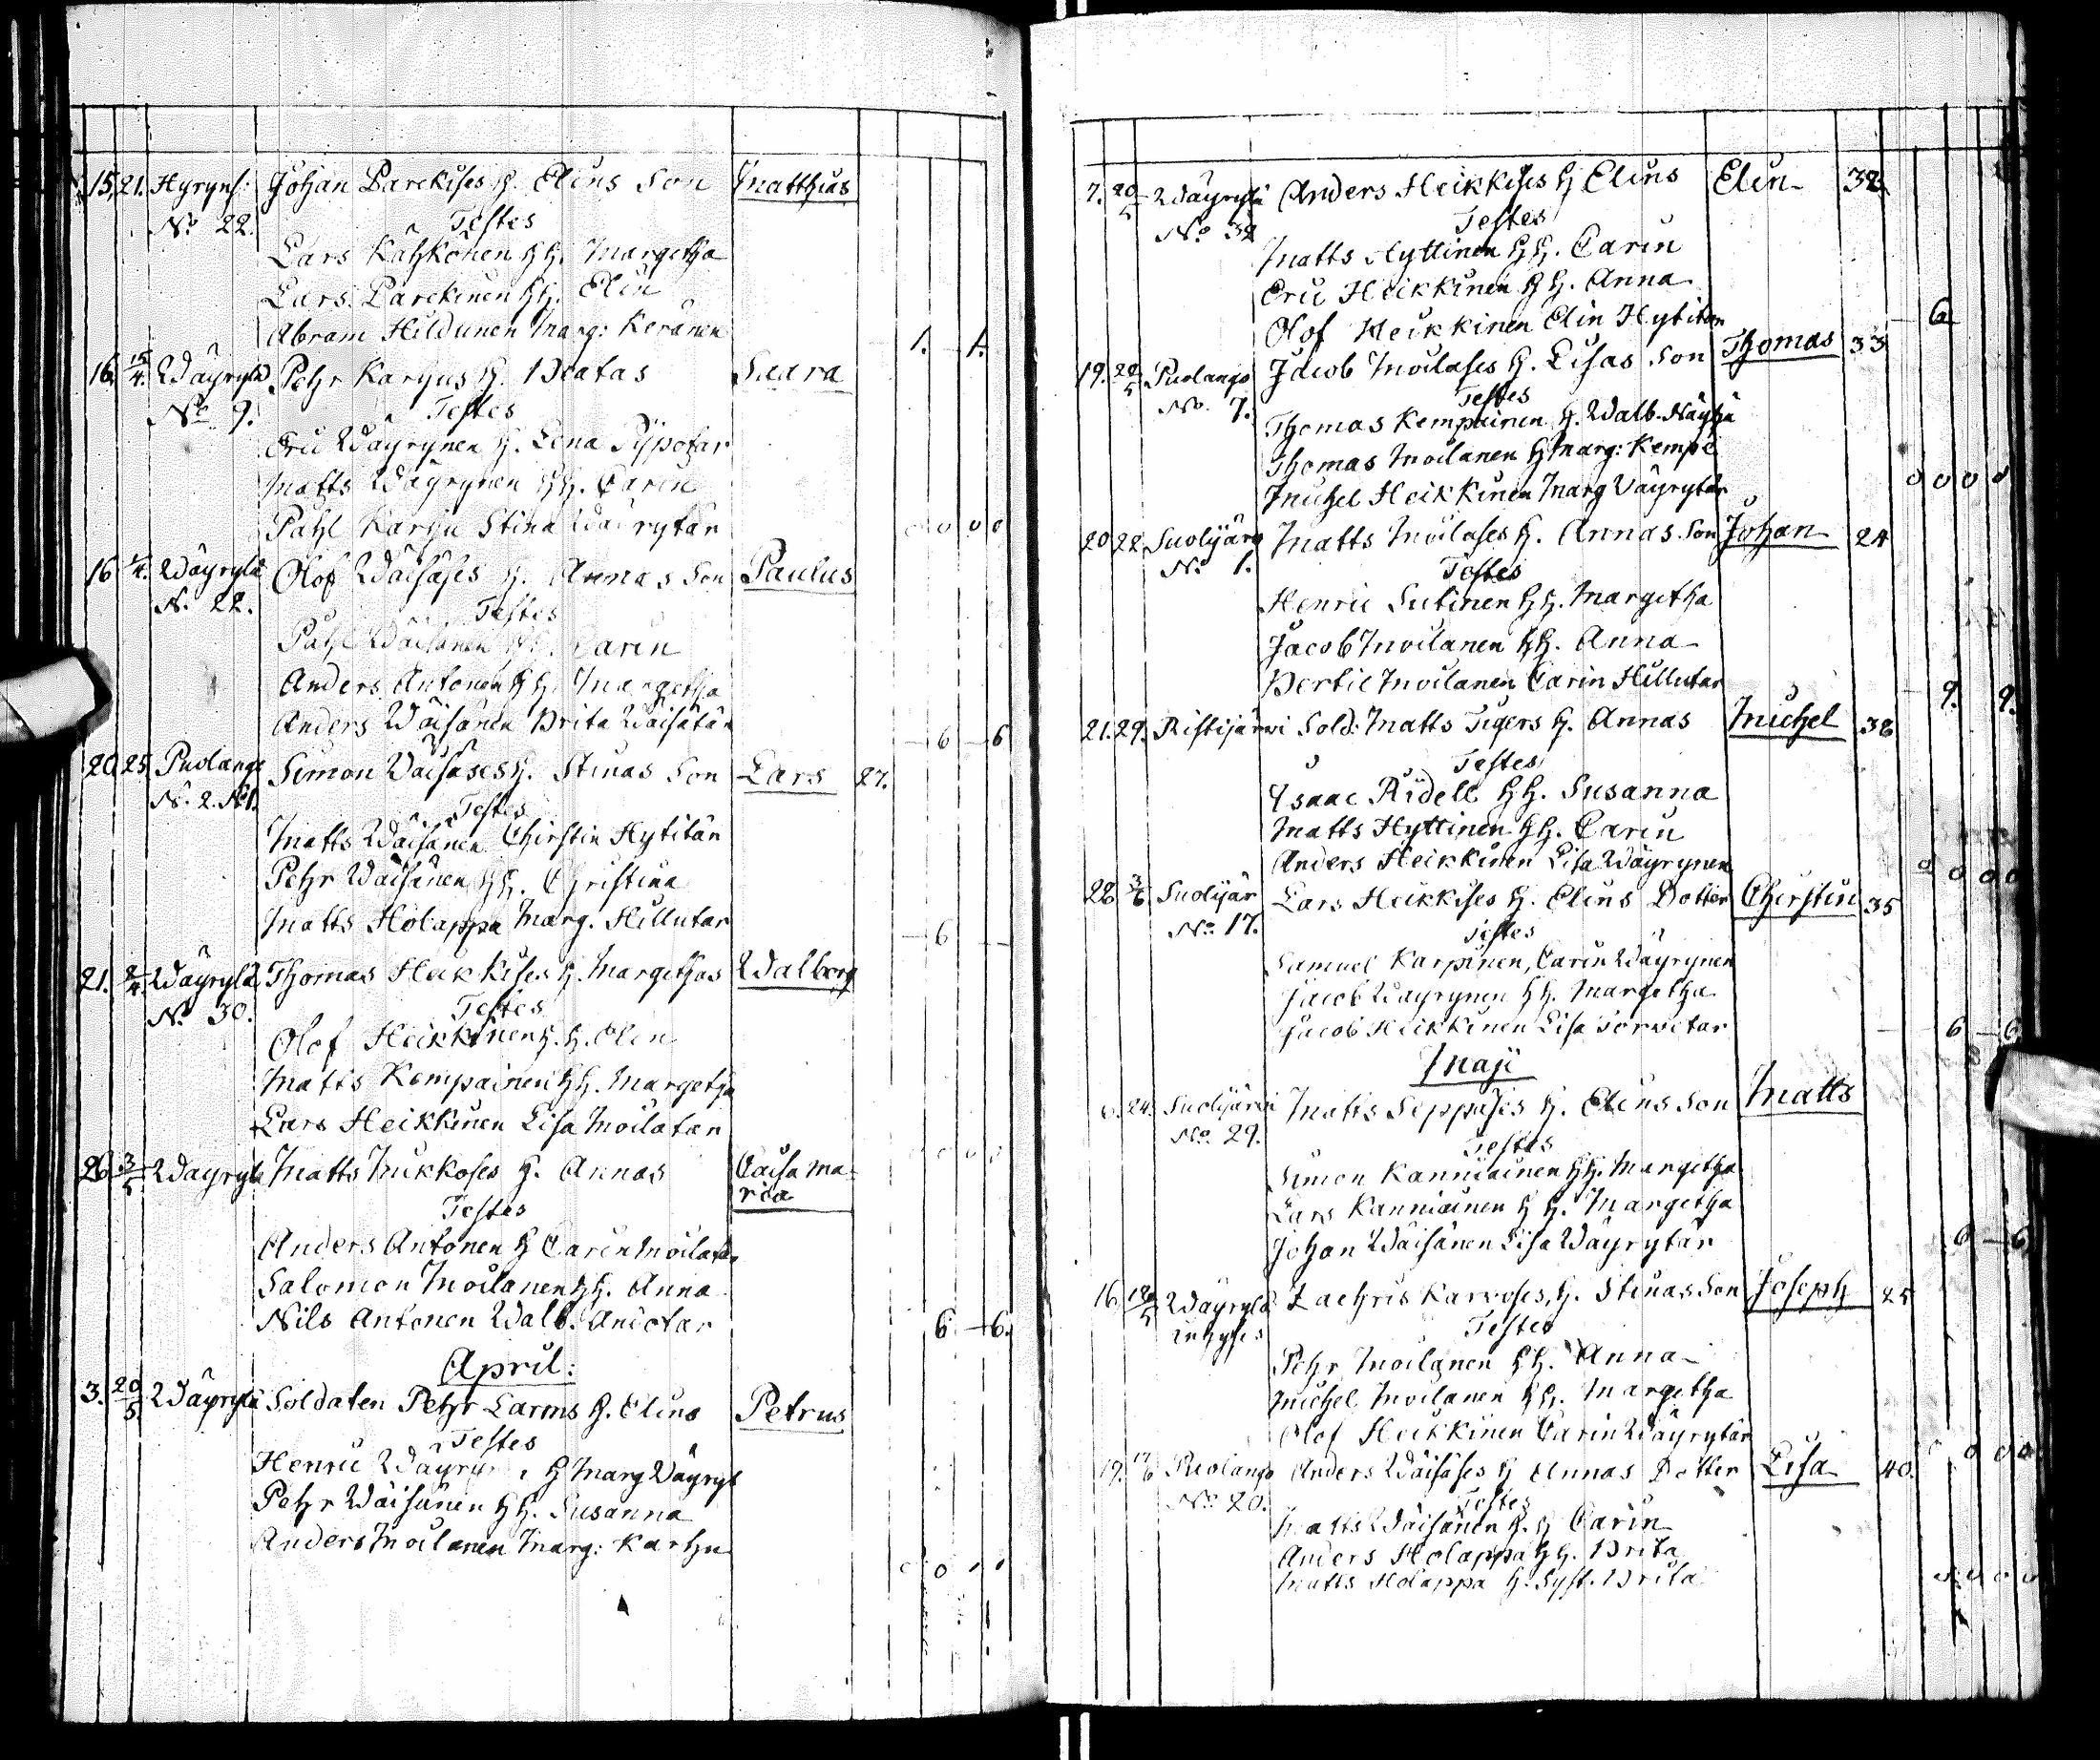 15. 21. Hyryns: Johan Parckises H. Elins Son Matthias
No 22. Testes
Lars Kähkönen H H. Margetha
Lars Parckinen H H. Elin
Abram Hildunen Marg: Keränen
1. 1.
16. 15/4. Wäyrylä Pehr Karjus H. Beatas Saara
No 9. Testes
Eric Wäyrynen H. Lena
Matts Wäyrynen H H. Carin
Påhl Karju Stina Wäyrytär
0 0 0 0
16 1/4. Wäyrylä Olof Wäisäses H. Annas Son Paulus
N. 22. Testes
Påhl Wäisänen H H. Carin
Anders Antonen H H. Margetha
Anders Wäisänen Brita Wäisätär
– 6 – 6
20 25 Puolango Simon Wäisäses H. Stinas Son Lars 27.
N. 2. Testes
Matts Wäisänen Chirstin Hytitän
Pehr Wäisänen H H. Christina
Matts Holappa Marg. Hillutar
– 6 –
21. 2/4 Wäyrylä Thomas Heikkises H. Margethas Walborg
No 30. Testes
Olof Heikkinen H. H. Elin
Matts Kempainen H H. Margetha
Lars Heikkinen Lisa Moilatar
26 3/5 Wäyrylä Matts Mikkoses H. Annas Caisa Ma-
ria
Testes
Anders Antonen H Carin Moilatar
Salomon Moilanen H H. Anna
Nils Antonen Walb.
6 – 6.
April:
3. 20/5 Wäyrylä Soldaten Pehr Larms H. Elins Petrus
Testes
Henric H Marg Wäyryt
Pehr Wäisänen H H. Susanna
Anders Moilanen Marg: Karhu
7. 20/5 Wäyrylä Anders Heikkises H Elins Elin 32
No 32 Testes
Matts Hyttinen H H. Carin
Eric Heikkinen H H. Anna
Olof Heikkinen Elin Hytitar
6
19. 22/5 Puolango Jacob Moilases H. Lisas Son Thomas 33
No. 7. Testes
Thomas Kempainen H. Walb.
Thomas Moilanen H Marg: Kemp
Michel Heikkinen Marg Väyrytär
0 0 0 0
20 22 Suolijärvi Matts Moilases H. Annas Son Johan 24
No 1. Testes
Henric Sutinen H H. Margetha
Jacob Moilanen H H. Anna
Bertil Moilanen Carin Hillutar
9. 9.
21. 29. Ristijärwi Sold: Matts Tigers H. Annas Michel 38
Testes
Isaac Ridell H H. Susanna
Matts Hyttinen H H. Carin
Anders Heikkinen Lisa Wäyrynen
0 0 0 0
22 3/6 Suolijär Lars Heikkises H. Elins Dotter Chirstin 35
No 17. Testes
Samuel Karpinen, Carin Wäyrynen
Jacob Wäyrynen H H. Margetha
Jacob Heikkinen Lisa Torwitar
– 6 – 6
Maji
6. 24. Suolijärvi Matts Seppäses H. Elins Son Matts
No. 29. Testes
Simon Kanniainen H H. Margetha
Lars Kanniainen H H. Margetha
Johan Wäisänen Lisa Wäyrytär
6 – 6
16 18/5 Wäyrylä Zachris Karvoses, H. Stinas Son Joseph 25
Testes
Pehr Moilanen H H. Anna
Michel Moilanen H H. Margetha
Olof Heikkinen Carin Wäyrytär
0 0 0
19. 17/6 Puolango Anders Wäisäses H Annas Dotter Lisa 40.
No 20. Testes
Matts Wäisänen H. H Carin
Anders Holappa H H. Brita
Matts Holappa H. Syst. Brita